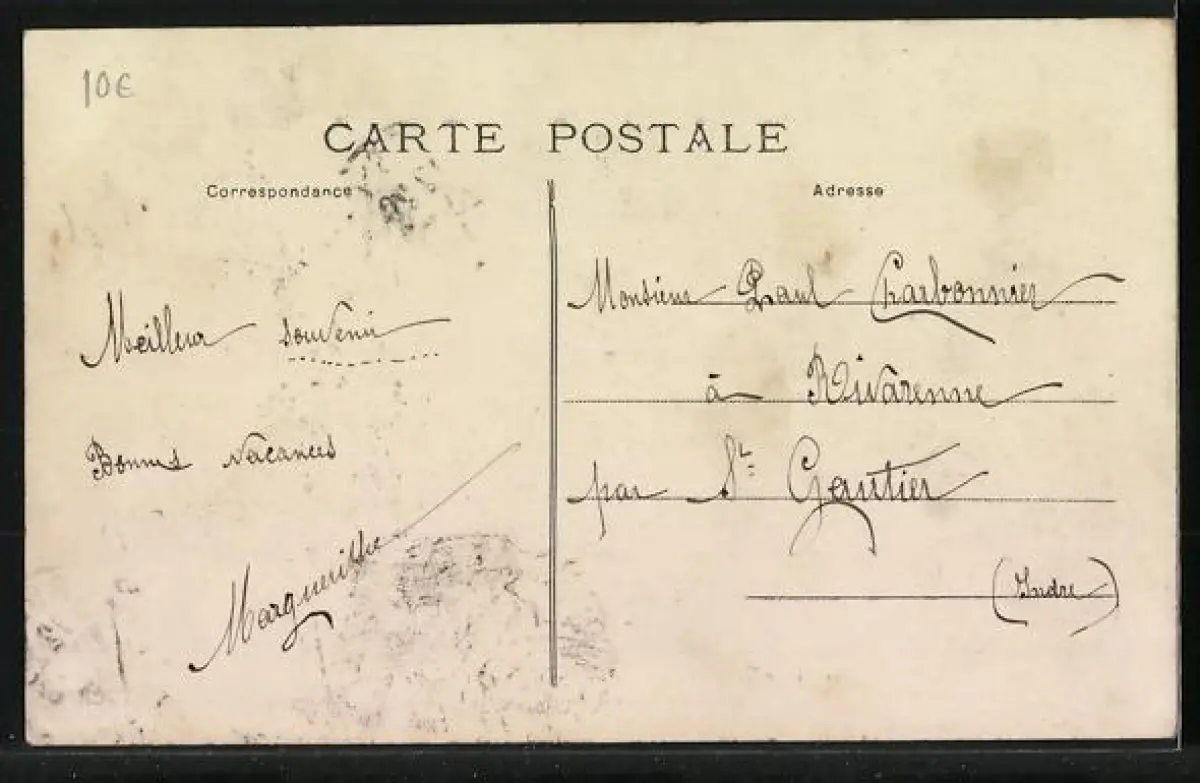 10€
CARTE POSTALE
Correspondance
Adresse
Meilleur souvenir
Bonnes vacances
Marguerithe
Monsieur Paul Charbonnier
à Rivarenne
par St Gautier
(Indre)